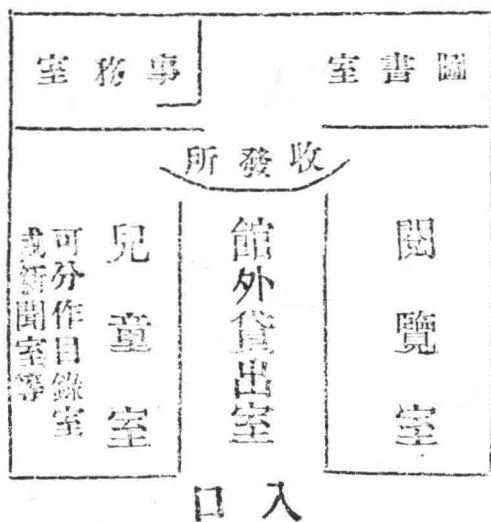 圖書室
事務室
收發所
閱覽室
館外貸出室
兒童室
可分作目錄室
或新聞室等
入口